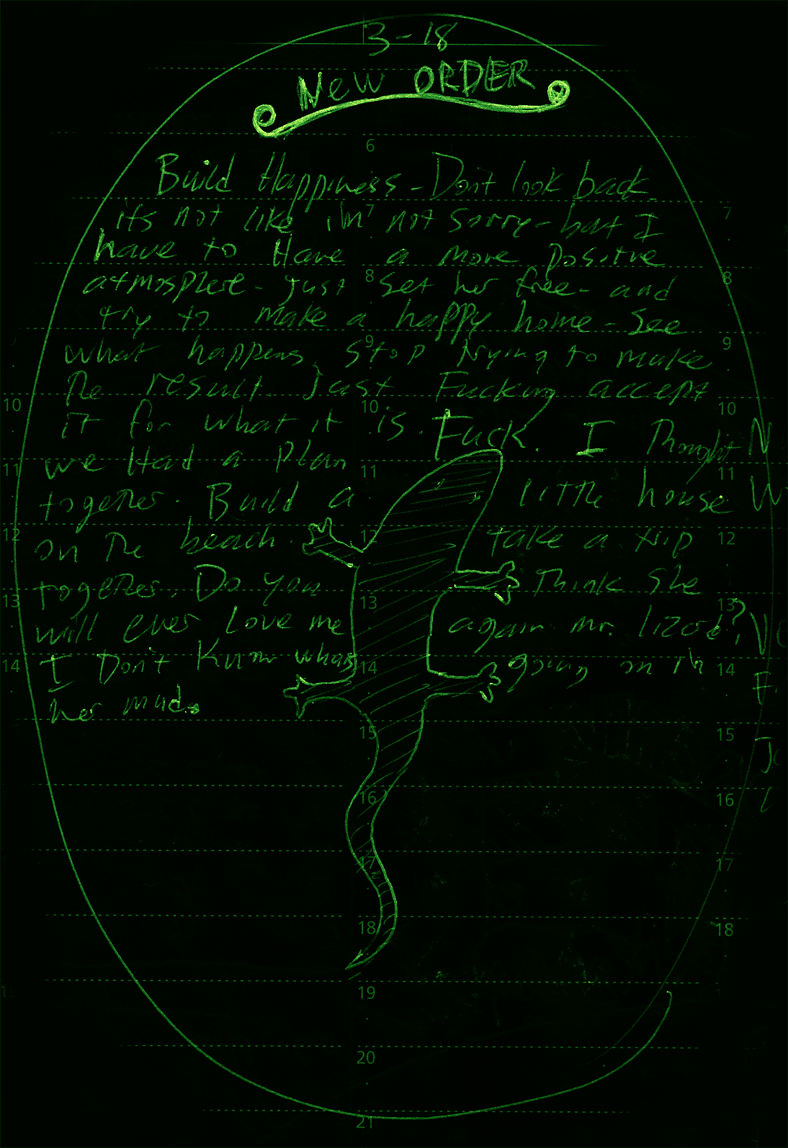 3-18
New ORDER
Build Happiness - Dont look back
its not like i'm not sorry - but I
have to Have a more positive
atmosphere - just set her free - and
try to make a happy home - See
what happens. Stop trying to make
The result. Just Fucking accept
it for what it is. Fuck. I Thought
we Had a Plan
together. Build a little house
on The beach. take a trip
together. Do you Think She
will ever Love me again mr. lizard?
I Don't Know whats going on in
her mind.
6
7
8
9
10
11
12
13
14
15
16
17
18
19
20
21
7
8
9
10
11
12
13
14
15
16
17
18
10
11
12
13
14